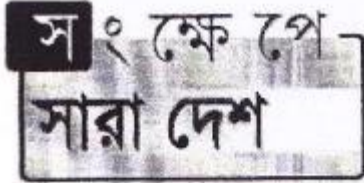 সংক্ষেপে
সারা দেশ